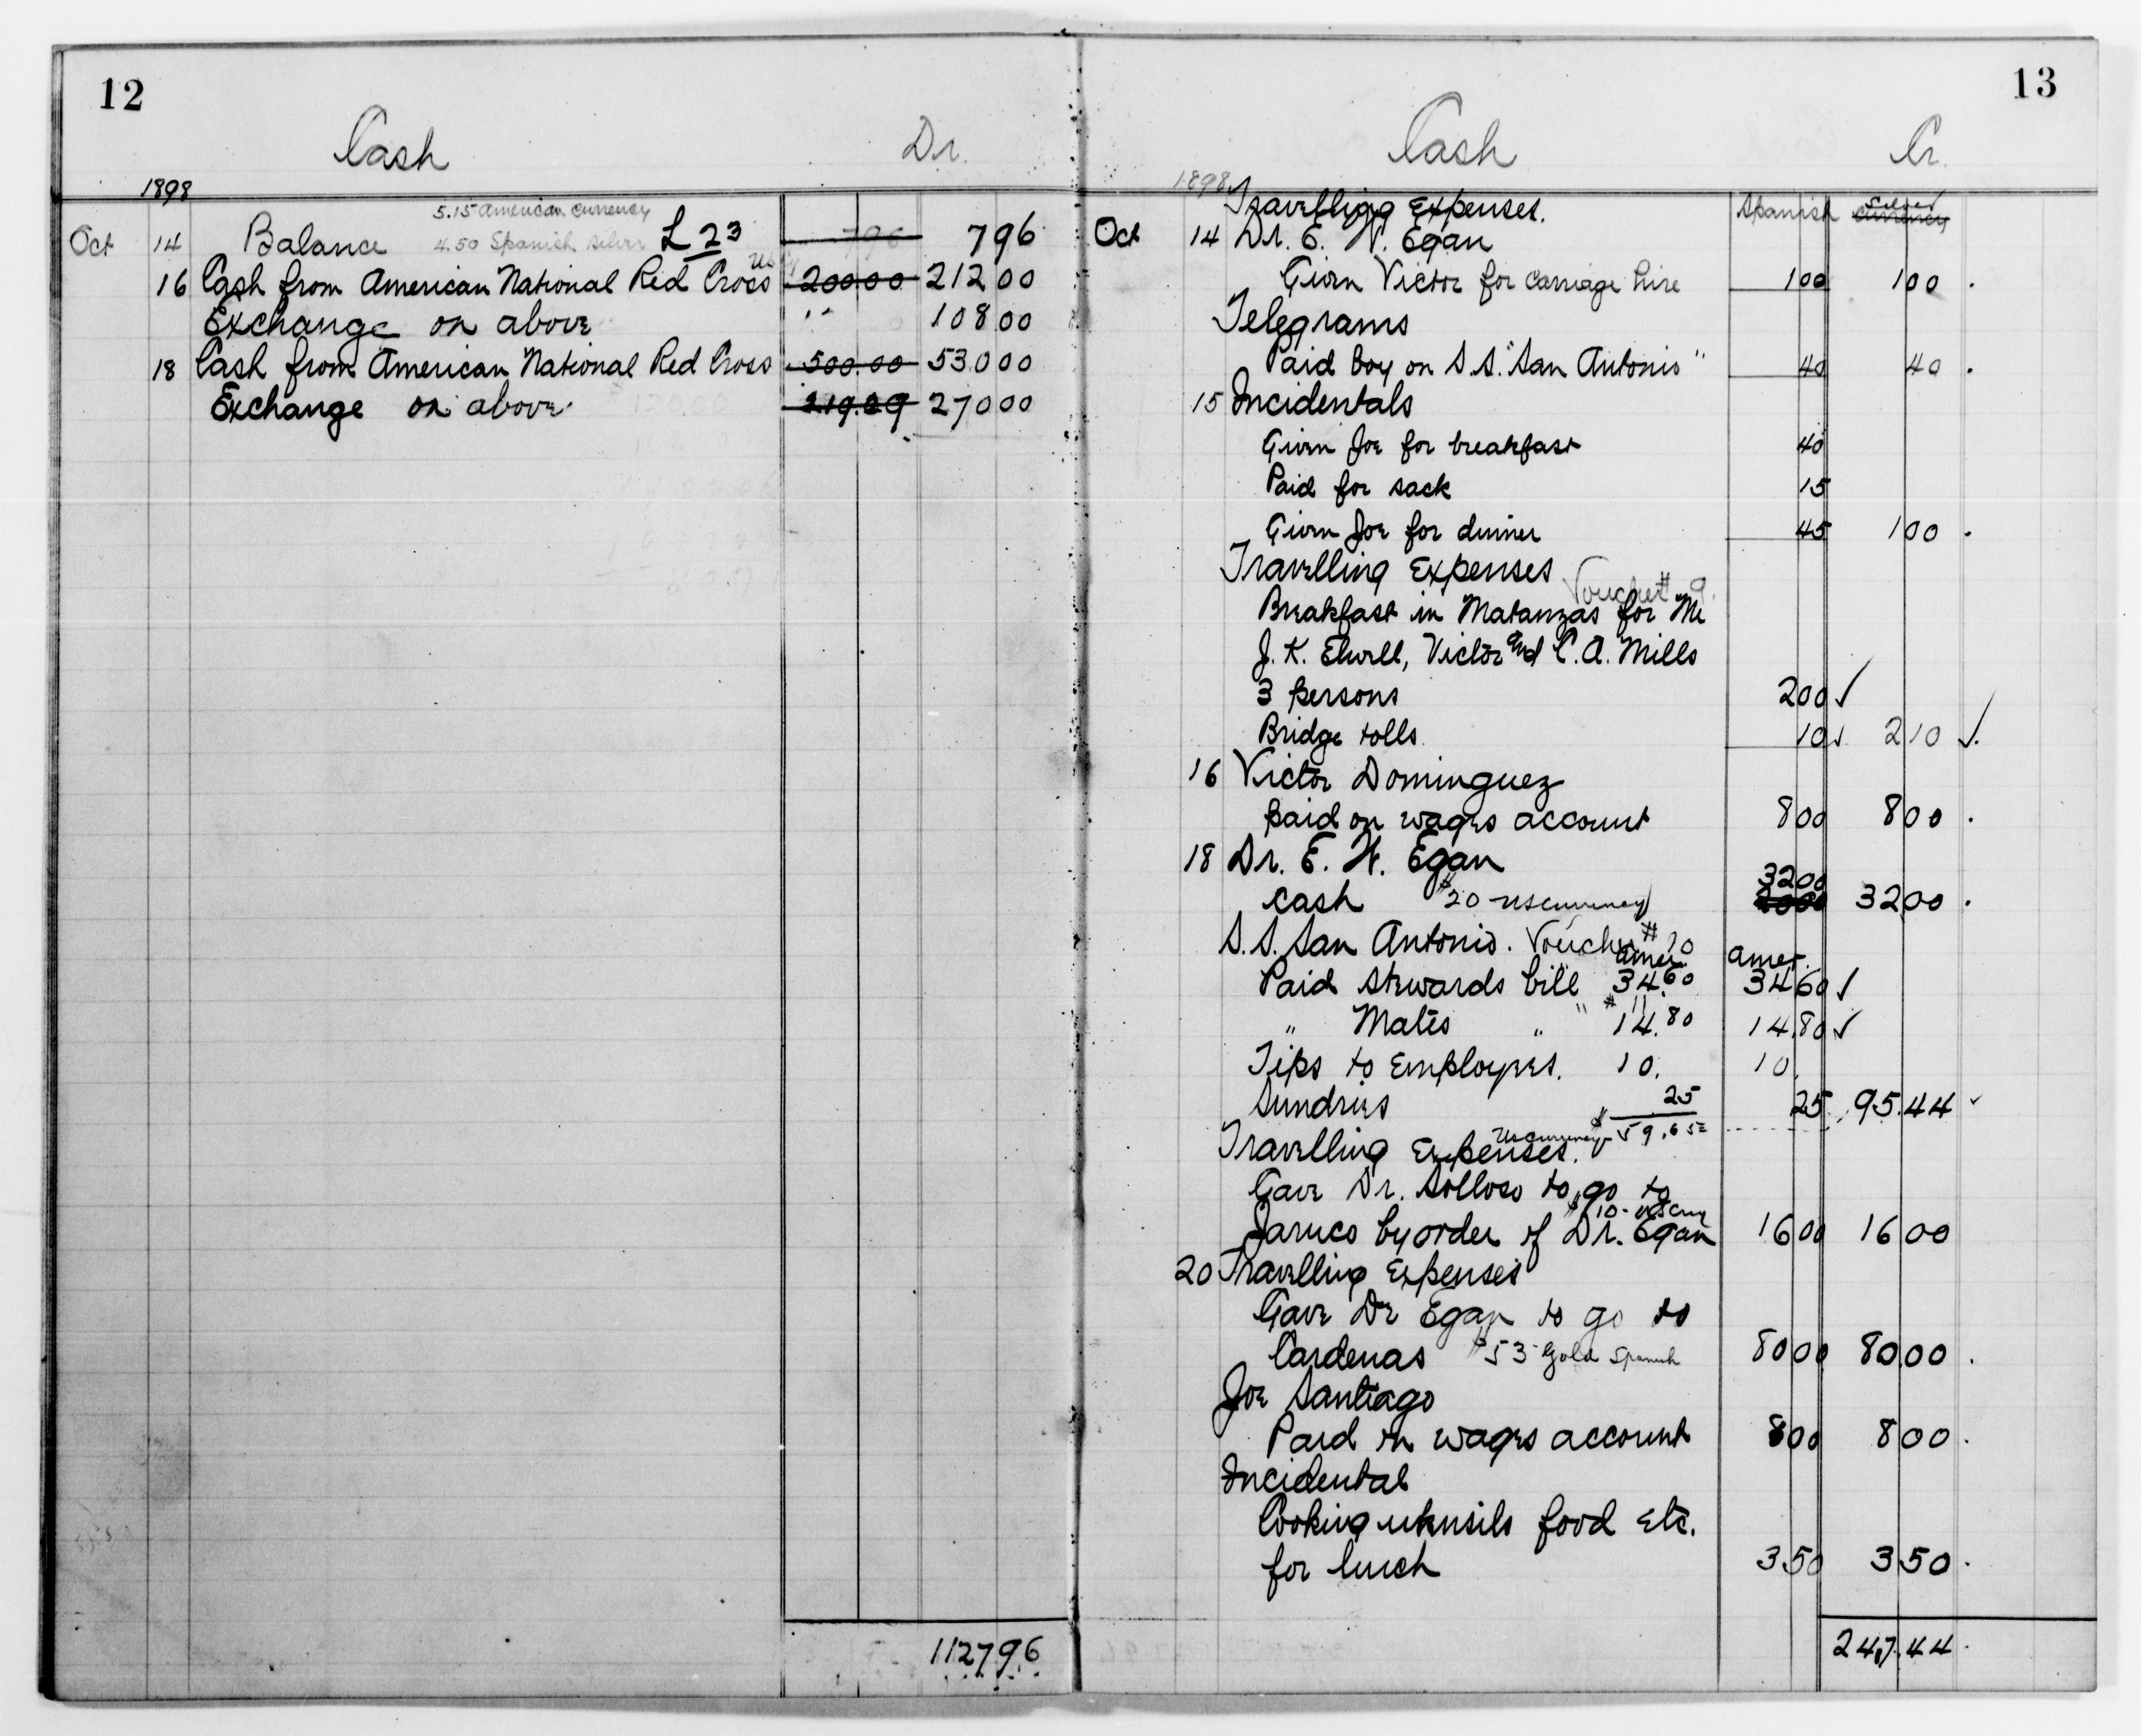 12
Cash Dr.
1898
5.15 American currency
Oct 14 Balance 4.50 Spanish silver L 23 796 796
US
16 Cash from American National Red Cross 200.00 212 00
Exchange on above " 108.00
18 Cash from American National Red Cross 500.00 530 00
Exchange on above 219.29 270 00
1127 96
13
Cash Cr.
1898 Travelling Expenses. Spanish silver currency
Oct 14 Dr. E. W. Egan
Given Victor for carriage hire 1 00 1 00
Telegrams
Paid boy on S.S. "San Antonio" 40 40
15 Incidentals
Given Joe for breakfast 40
Paid for sack 15
Given Joe for dinner 45 1 00
Travelling Expenses
Voucher # 9.
Breakfast in Matanzas for Mr
J. K. Elwell, Victor and C. A. Mills
3 persons 2 00 ✓
Bridge tolls 10 ✓ 2 10 ✓
16 Victor Dominguez
paid on wages account 8 00 8 00
18 Dr. E. W. Egan
3200
Cash $20 - US currency 2000 32 00
S.S. San Antonio. Voucher # 10
Amer. Amer.
Paid Stewards bill 34.60 34 60 ✓
# 11
" Mates " 14.80 14.80 ✓
Tips to Employes. 10. 10.
Sundries 25 25 95.44
US currency $59.65
Travelling Expenses.
Gave Dr. Solloso to go to
$10 - US Cury
Jaruco by order of Dr. Egan 16 00 16 00
20 Travelling Expenses
Gave Dr Egan to go to
Cardenas $53 - Gold Spanish 80 00 80 00
Joe Santiago
Paid on wages account 8 00 8 00
Incidental
Cooking utensils food etc.
for lunch 3 50 3 50
247.44